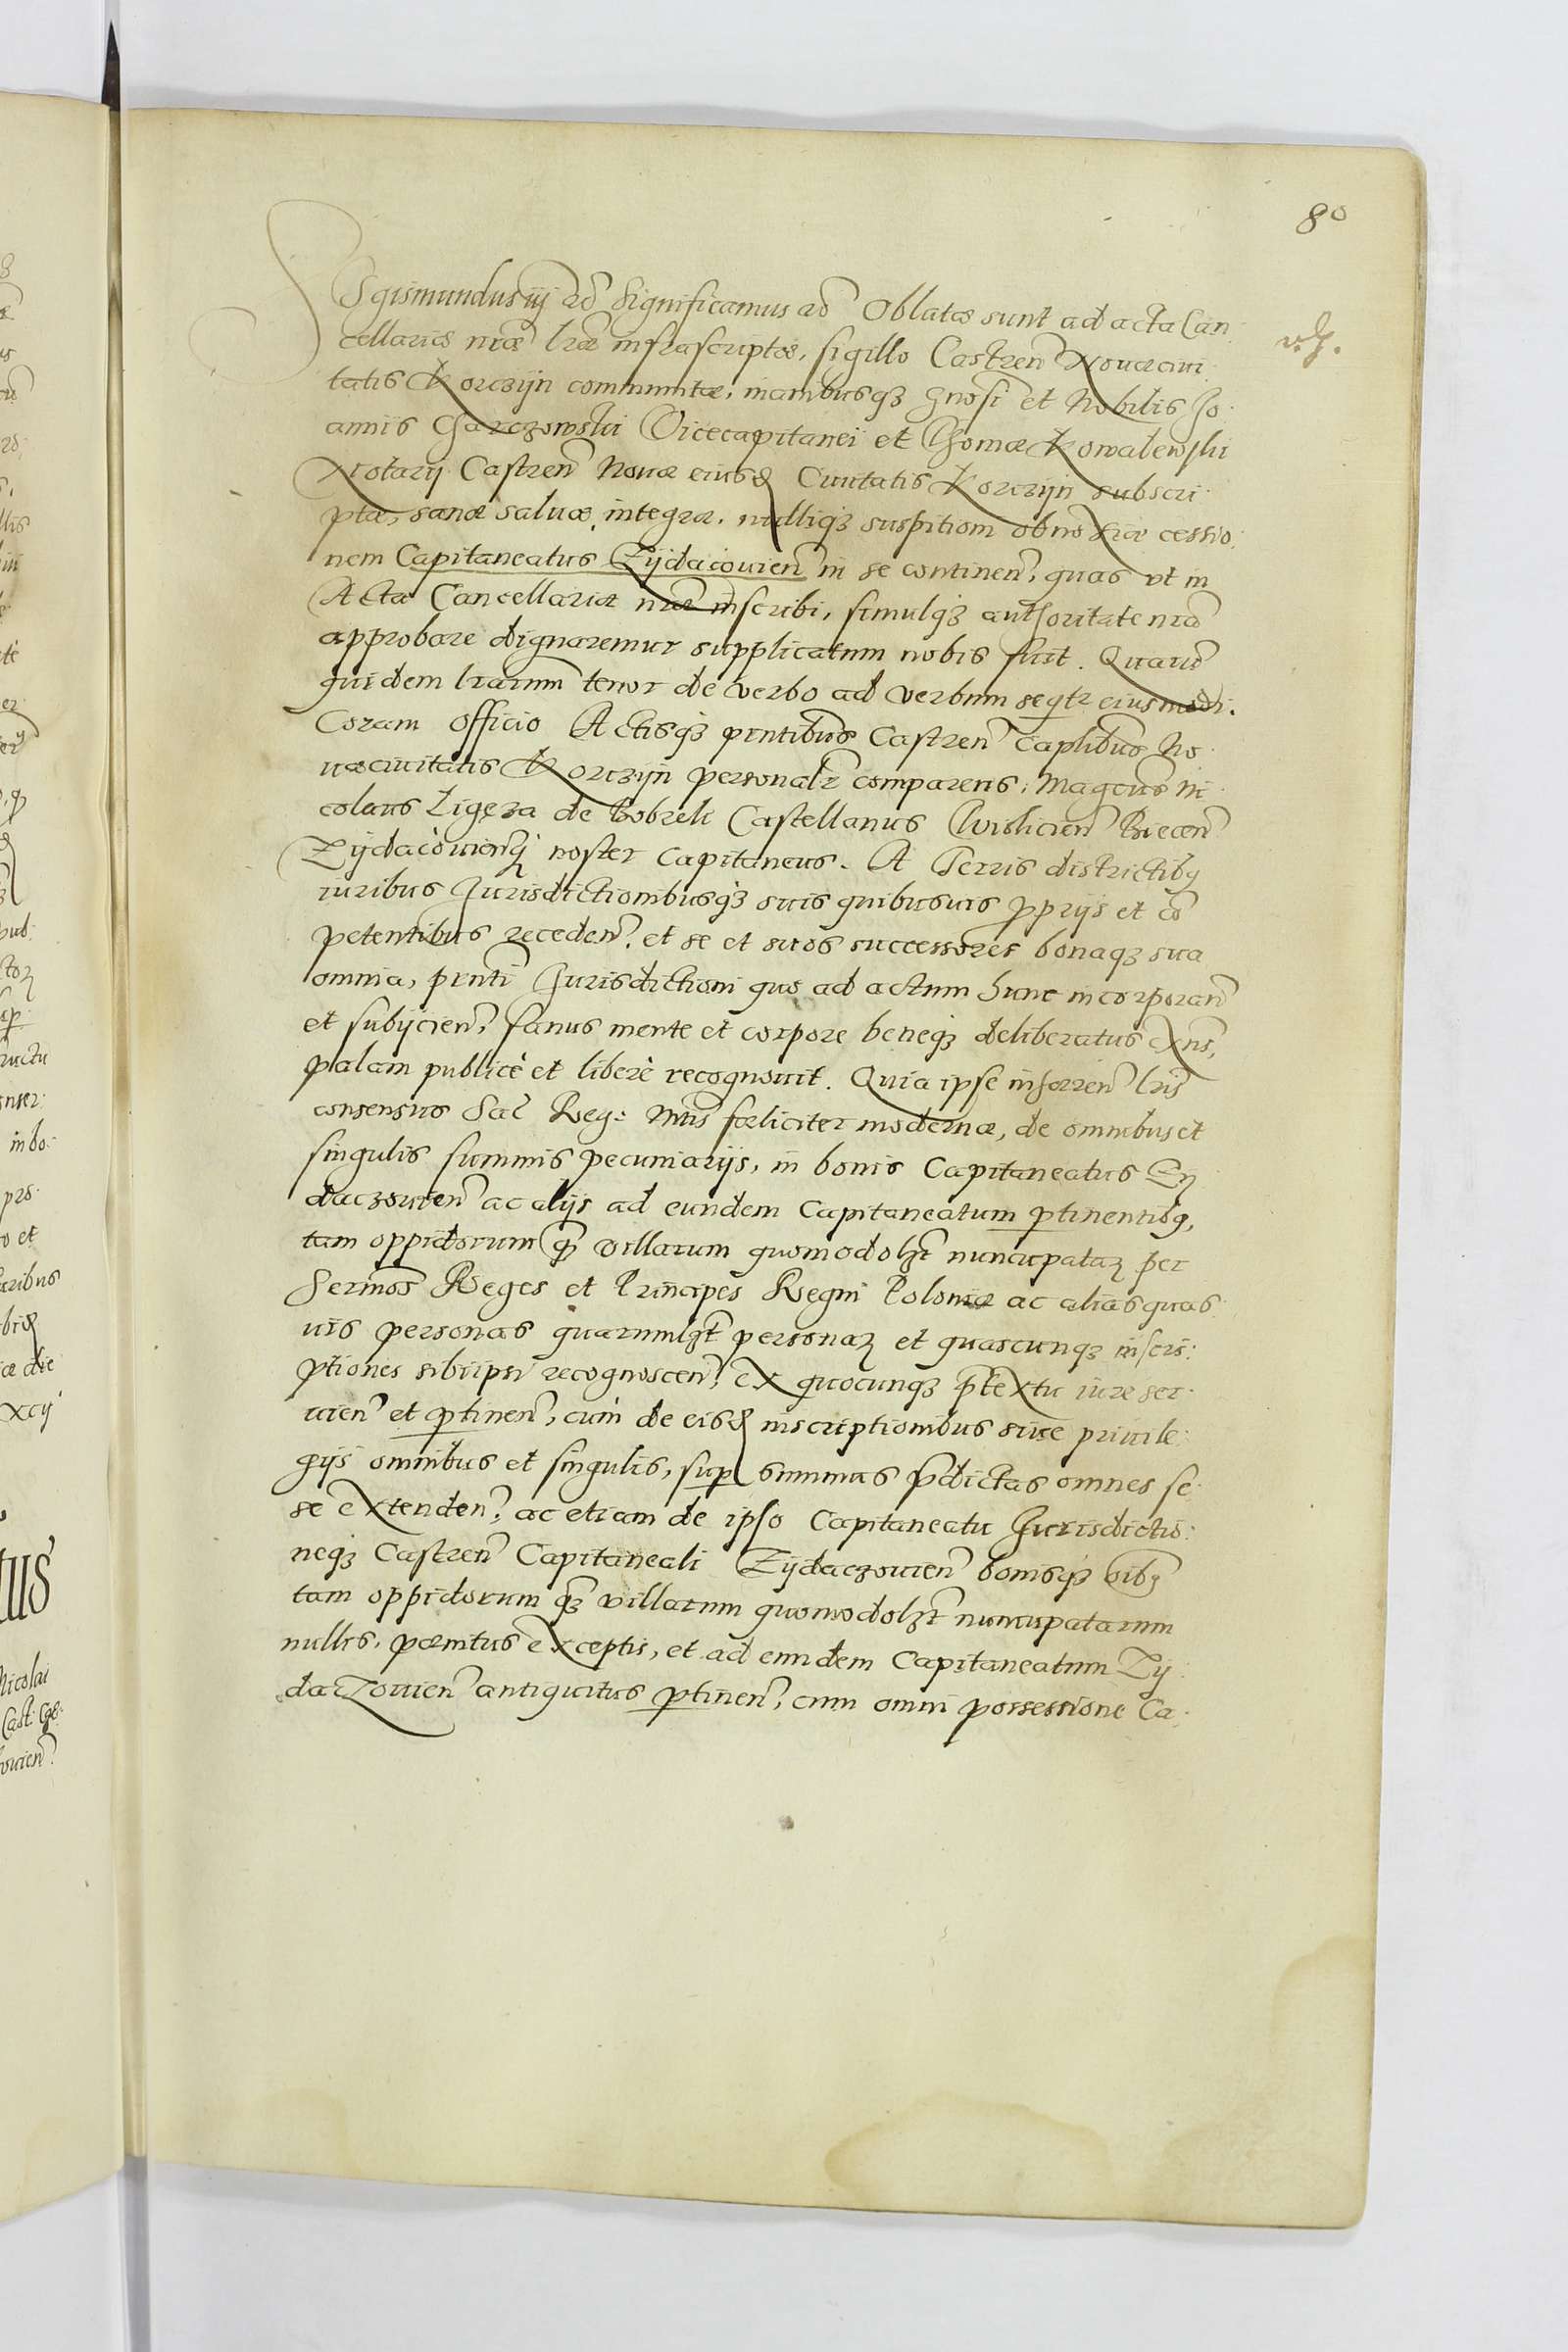 80
Sigismundus iij etc̃ Significamus etc̃ Oblatæ sunt ad acta Can
cellariæ nr̃æ lr̃æ infrascriptæ, sigillo Castren̄ Nouæ ciui
tatis Korczijn communitæ, manibusqꝫ Gnosi et Nobilis Jo
annis Charczowski Vicecapitanei et Thomæ Kowalewski
Notarij Castren̄ Nouæ eiusd Ciuitatis Korczijn subscri
ptæ, sanæ saluæ integræ, nulliqꝫ suspitioni obnoxiæ cessio
nem Capitaneatus Zijdacouien̄ in se continen̄, quas vt in
Acta Cancellariæ nr̃æ inscribi, simulqꝫ authoritate nr̃a
approbare dignaremur supplicatum nobis fuit. Quarū
quidem lr̃arum tenor de verbo ad verbum seqtr eiusmodi.
Coram Officio Actisqꝫ pn̄tibus Castren̄ Capl̄ibus No
uæciuitatis Korczijn personalr̃ comparens, Magcus Ni
colaus Ligęza de Bobrek Castellanus Wislicien̄ Biecen̄
Zijdacouien̄qꝫ noster Capitaneus. A Terris districtibꝫ
iuribus Jurisdictionibusqꝫ suis quibusuis ꝓprijs et cō
petentibus receden̄, et se et suos successores bonaqꝫ sua
omnia, pn̄ti Jurisdictioni quo ad actum hunc incorporan̄
et subijcien̄, sanus mente et corpore beneqꝫ deliberatus exn̄s,
palam publicè et liberè recognouit. Quia ipse inhæren̄ lr̃is
consensus Sac̃ Reg: Mtis fæliciter modernæ, de omnibus et
singulis summis pecuniarijs, in bonis Capitaneatus Zy
daczouien̄ ac alijs ad eundem Capitaneatum ꝑtinentibꝫ,
tam oppidorum qꝫ villarum quomodolꝫt nuncupataꝝ per
Sermos Reges et Principes Regni Poloniæ ac alias quas
uis personas quarumlꝫt personaꝝ et quascunqꝫ inscri:
ptiones sibi ipsi recognoscen̄, ex quocunqꝫ prætextu iure ser
uien̄ et ꝑtinen̄, cum de eisd inscriptionibus siue priuile:
gijs omnibus et singulis, suꝑ summas prædictas omnes se
se extenden̄, ac etiam de ipso Capitaneatu Jurisdictio:
neqꝫ Castren̄ Capitaneali Zijdaczouien̄ bonisqꝫ oibꝫ
tam oppidorum qꝫ villarum quomodolꝫt nuncupatarum
nullis, pænitus exceptis, et ad eundem Capitaneatum Zij
daczouien̄ antiquitus ꝑtinen̄, cum omni possessione Ca